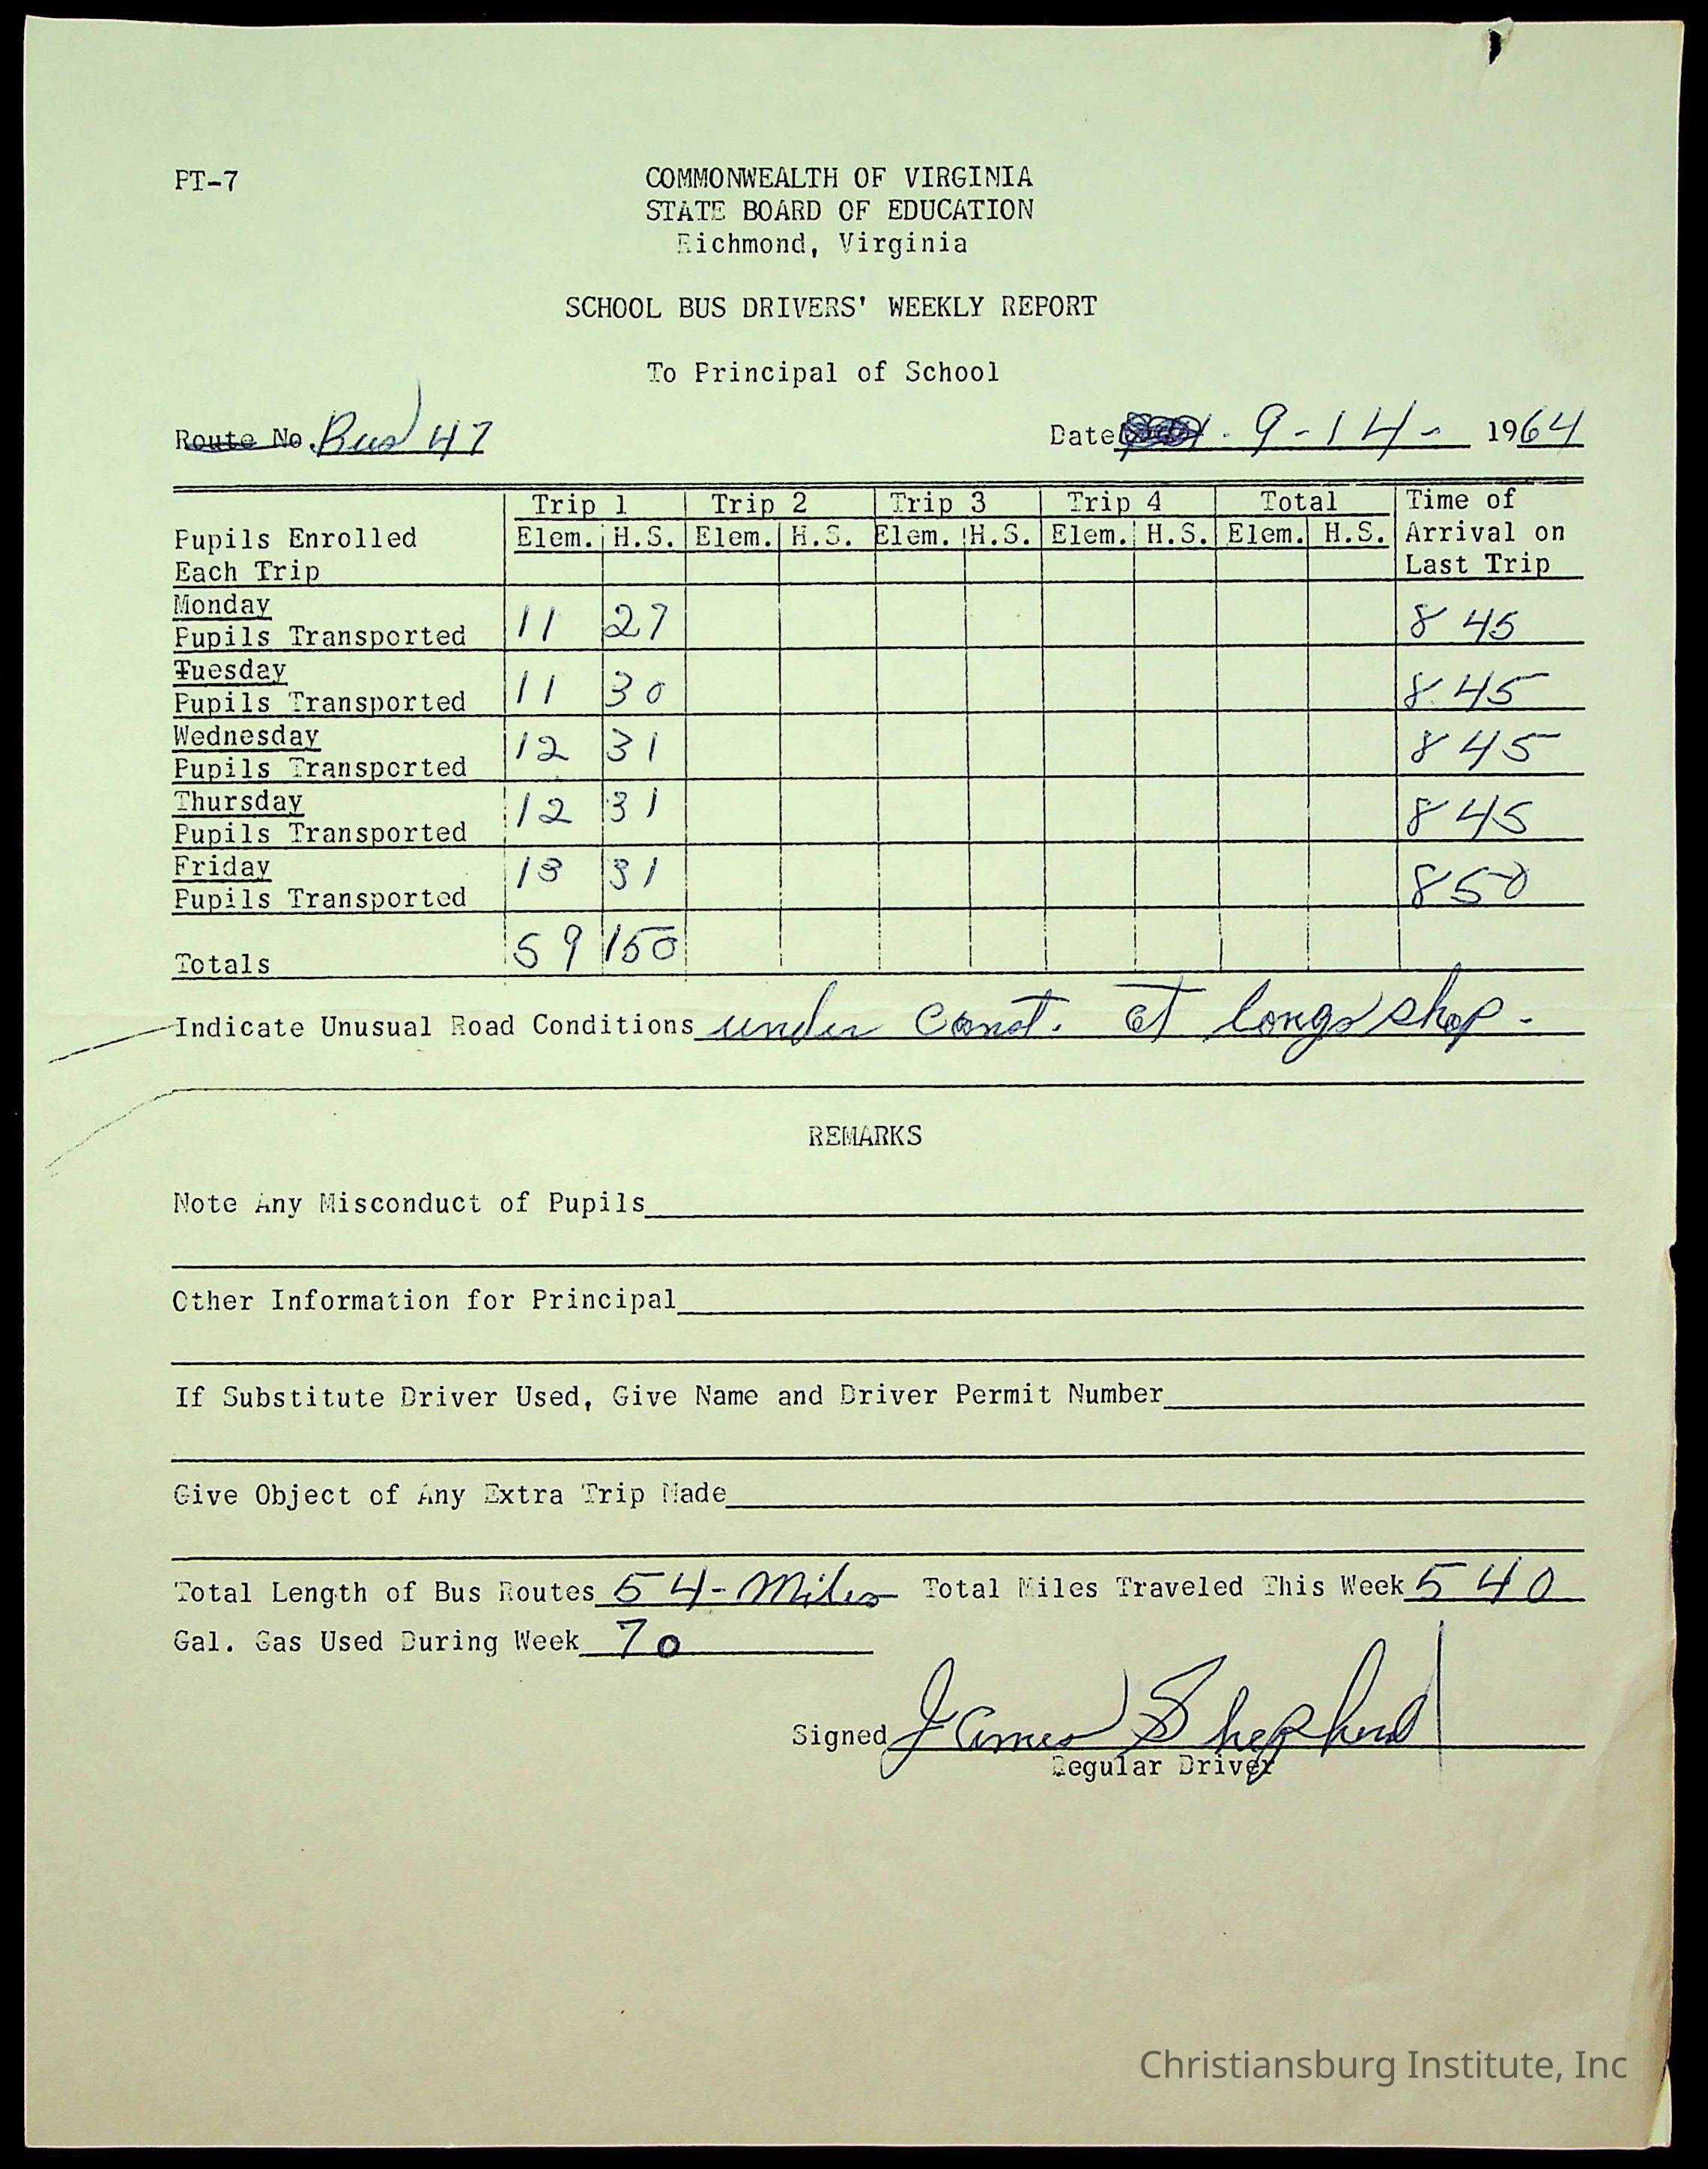 PT-7
COMMONWEALTH OF VIRGINIA
STATE BOARD OF EDUCATION
Richmond, Virginia
SCHOOL BUS DRIVERS' WEEKLY REPORT
To Principal of School
Route No. Bus 47 Date 9-14- 1964
Trip 1 Trip 2 Trip 3 Trip 4 Total Time of
Pupils Enrolled Elem. H.S. Elem. H.S. Elem. H.S. Elem. H.S. Elem. H.S. Arrival on
Each Trip Last Trip
Monday
Pupils Transported 11 27 8 45
Tuesday
Pupils Transported 11 30 8 45
Wednesday
Pupils Transported 12 31 8 45
Thursday
Pupils Transported 12 31 8 45
Friday
Pupils Transported 13 31 8 50
Totals 59 150
Indicate Unusual Road Conditions under Const. at longs shop.
REMARKS
Note Any Misconduct of Pupils
Other Information for Principal
If Substitute Driver Used, Give Name and Driver Permit Number
Give Object of Any Extra Trip Made
Total Length of Bus Routes 54-Miles Total Miles Traveled This Week 540
Gal. Gas Used During Week 70
Signed James Shepherd
Regular Driver
Christiansburg Institute, Inc